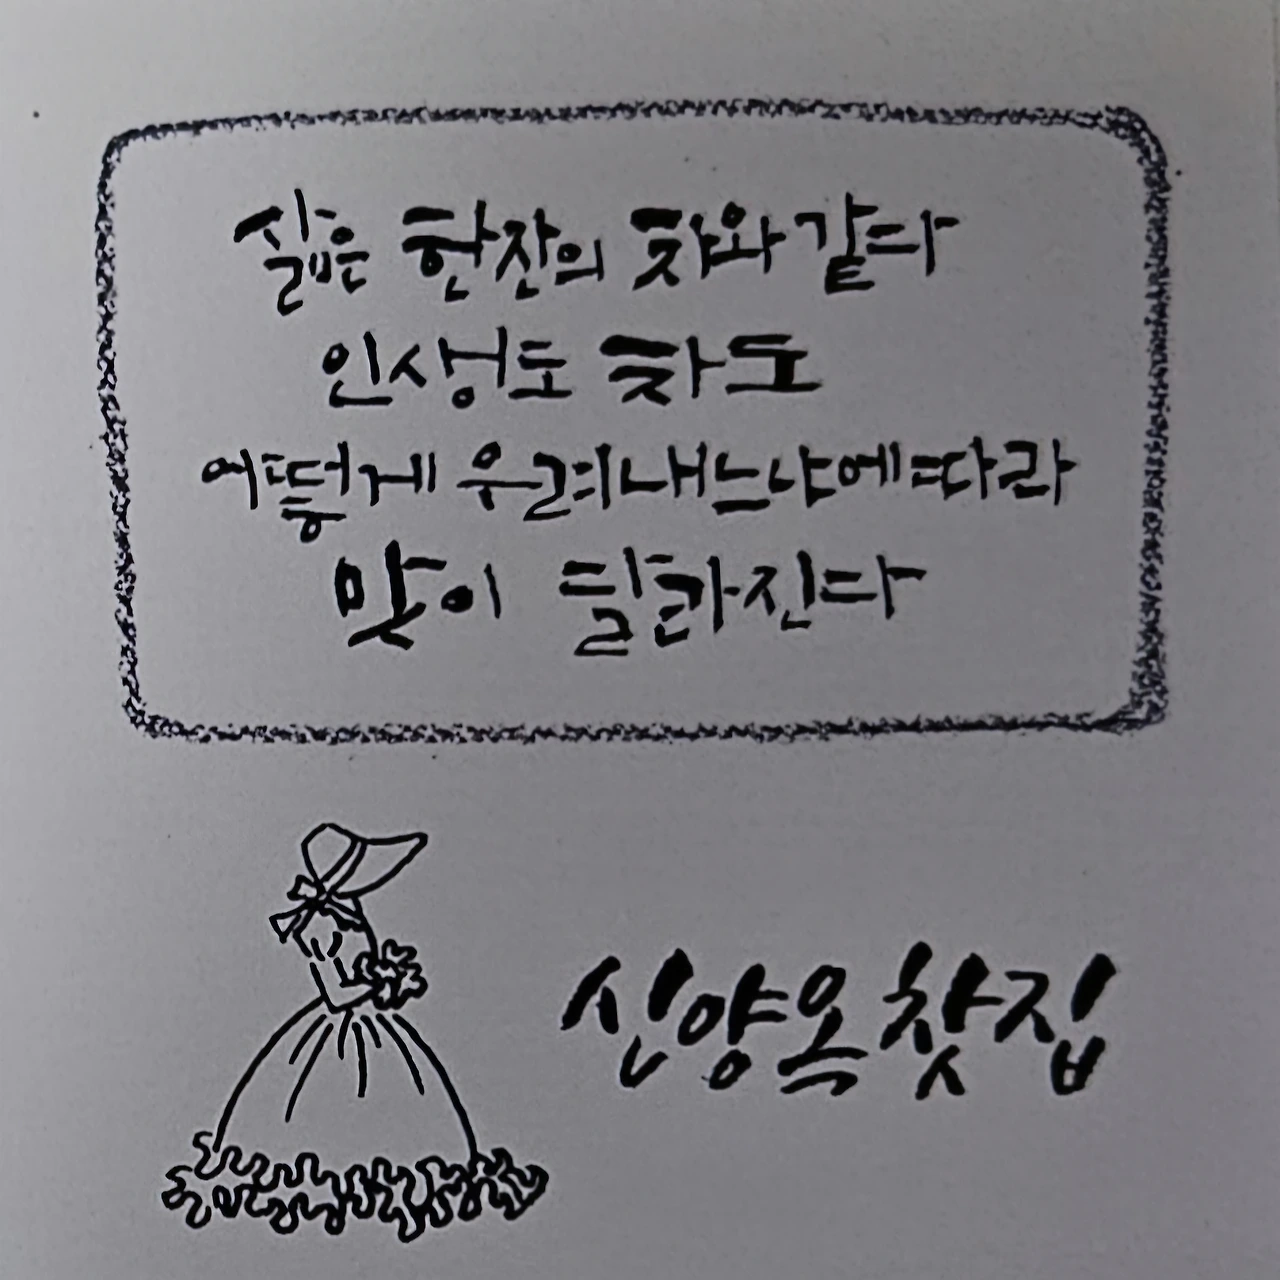 삶은 한잔의 차와 같다
인생도 차도
어떻게 우려내느냐에 따라
맛이 달라진다
신양옥찻집